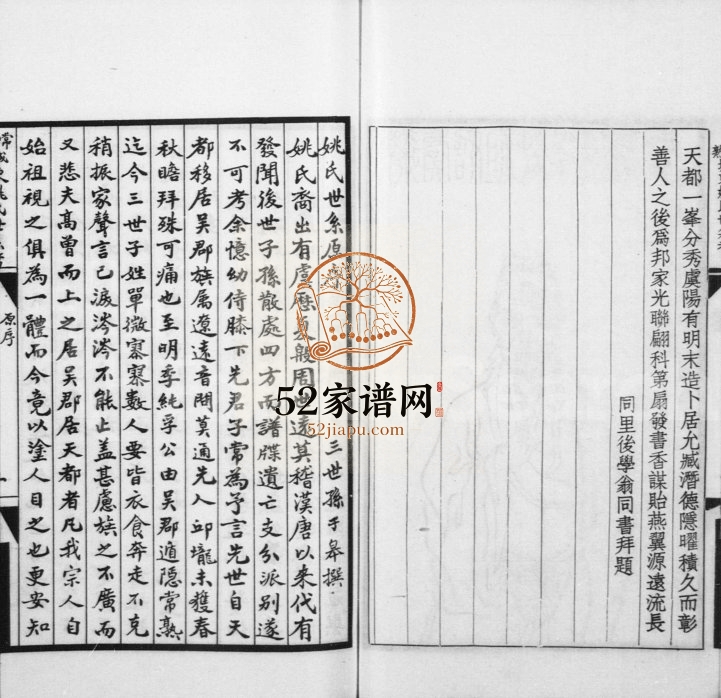 天都一峯分秀虞陽有明末造卜居允臧潛德隱曜積久而彰
善人之後為邦家光聯翩科第扇發書香謀貽燕翼源遠流長
同里後學翁同書拜題
姚氏世系原 三世孫于皋撰
姚氏裔出有虞歷夏殷周 遠莫稽漢唐以來代有
發聞後世子孫散處四方而譜牒遺亡支分派別遂
不可考余憶幼侍膝下先君子常為予言先世自天
都移居吳郡族属遼遠音問莫通先人邱壠未獲春
秋瞻拜殊可痛也至明季純孚公由吳郡遁隱常熟
迄今三世子姓單微寥寥數人要皆衣食奔走不克
稍振家聲言已淚涔涔不能止盖甚慮族之不廣而
又悲夫髙曾而上之居吳郡居天都者凡我宗人自
始祖視之俱為一體而今竟以塗人目之也更安知
原序
52家谱网
52jiapu.com